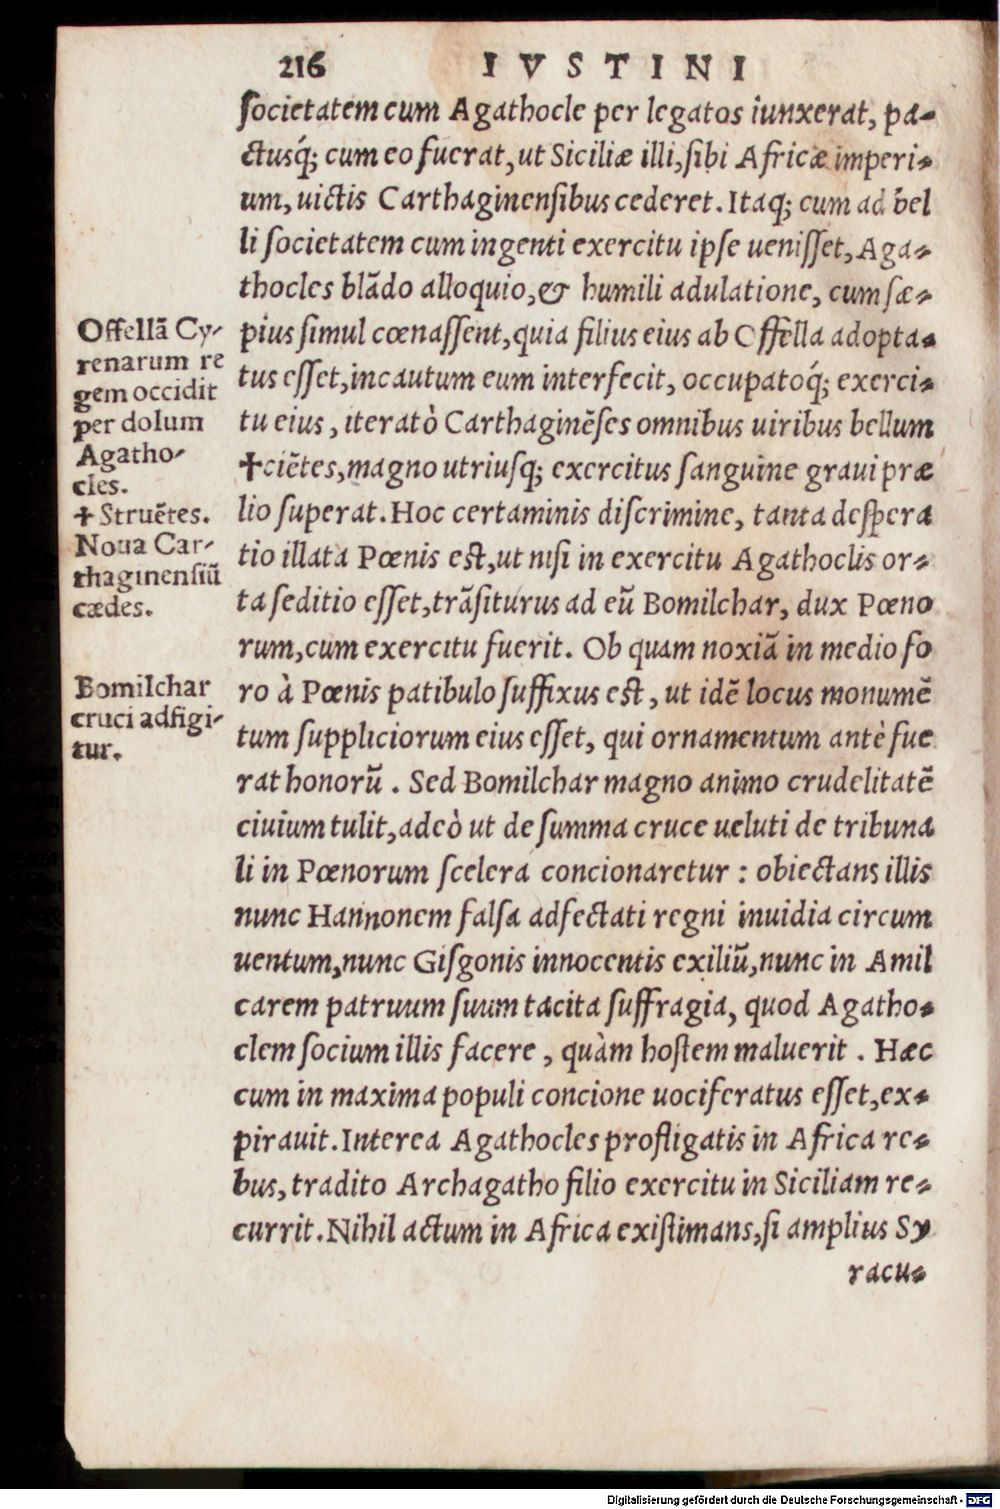 216 IVSTINI
societatem cum Agathocle per legatos iunxerat, pa-
ctusq́; cum eo fuerat, ut Siciliæ illi, sibi Africæ imperi-
um, uictis Carthaginensibus cederet. Itaq; cum ad bel
li societatem cum ingenti exercitu ipse uenisset, Aga-
thocles blādo alloquio, & humili adulatione, cum sæ-
pius simul cœnassent, quia filius eius ab Offella adopta-
tus esset, incautum eum interfecit, occupatoq́; exerci-
tu eius, iteratò Carthaginēses omnibus uiribus bellum
✝ciētes, magno utriusq; exercitus sanguine graui præ
lio superat. Hoc certaminis discrimine, tanta despera
tio illata Pœnis est, ut nisi in exercitu Agathoclis or-
ta seditio esset, trāsiturus ad eū Bomilchar, dux Pœno
rum, cum exercitu fuerit. Ob quam noxiā in medio fo
ro à Pœnis patibulo suffixus est, ut idē locus monumē
tum suppliciorum eius esset, qui ornamentum antè fue
rat honorū. Sed Bomilchar magno animo crudelitatē
ciuium tulit, adeò ut de summa cruce ueluti de tribuna
li in Pœnorum scelera concionaretur: obiectans illis
nunc Hannonem falsa adfectati regni inuidia circum
uentum, nunc Gisgonis innocentis exiliū, nunc in Amil
carem patruum suum tacita suffragia, quod Agatho-
clem socium illis facere, quàm hostem maluerit. Hæc
cum in maxima populi concione uociferatus esset, ex-
pirauit. Interea Agathocles profligatis in Africa re-
bus, tradito Archagatho filio exercitu in Siciliam re-
currit. Nihil actum in Africa existimans, si amplius Sy
racu-
Offellā Cy-
renarum re
gem occidit
per dolum
Agatho-
cles.
✝ Struētes.
Noua Car-
thaginensiū
cædes.
Bomilchar
cruci adfigi-
tur.
Digitalisierung gefördert durch die Deutsche Forschungsgemeinschaft - DFG